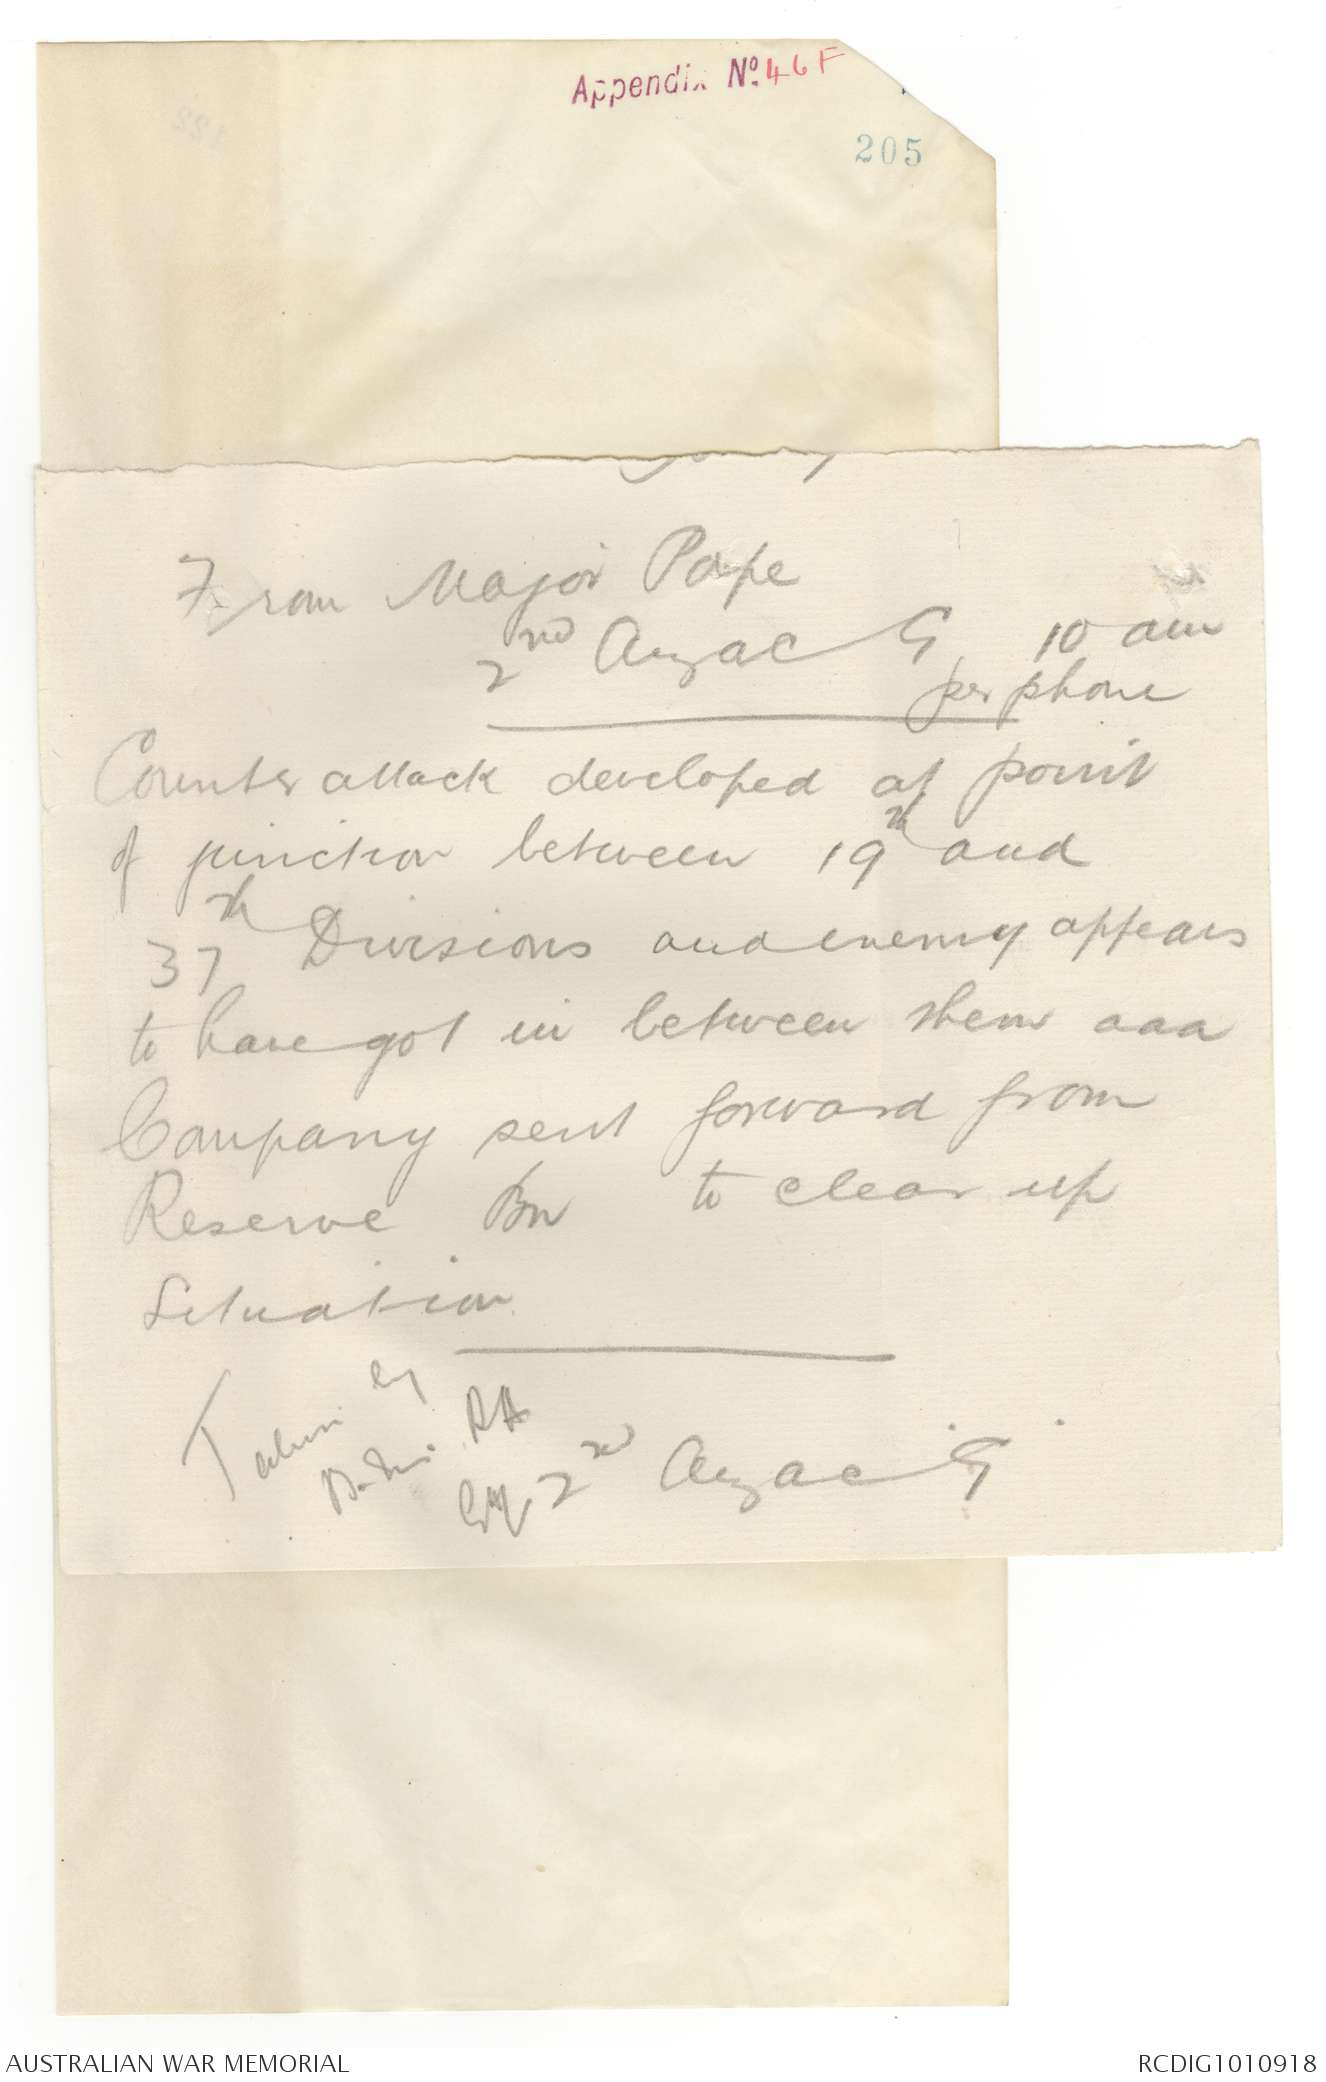 Appendix No. 46F
205
From Major Pope
2nd Anzac G 10 am
per phone
Counter attack developed at point
of junction between 19th and
37th Divisions and enemy appears
to have got in between them aaa
Company sent forward from
Reserve Bn to clear up
Situation
Taken by
RA
2nd Anzac G
AUSTRALIAN WAR MEMORIAL
RCDIG1010918